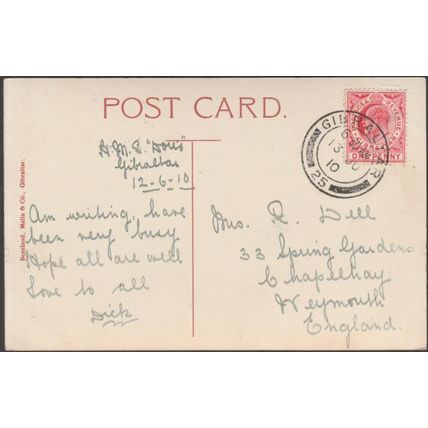 POST CARD.
H.M.S. "Doris"
Gibraltar
12-6-10
Am writing, have
been very busy
Hope all are well
Love to all
Dick
Mrs. R. Dell
33 Spring Gardens
Chapelhay
Weymouth
England.
GIBRALTAR
13 JU
10
25
POSTAGE & REVENUE
GIBRALTAR
ONE PENNY
Beanland, Malin & Co., Gibraltar.